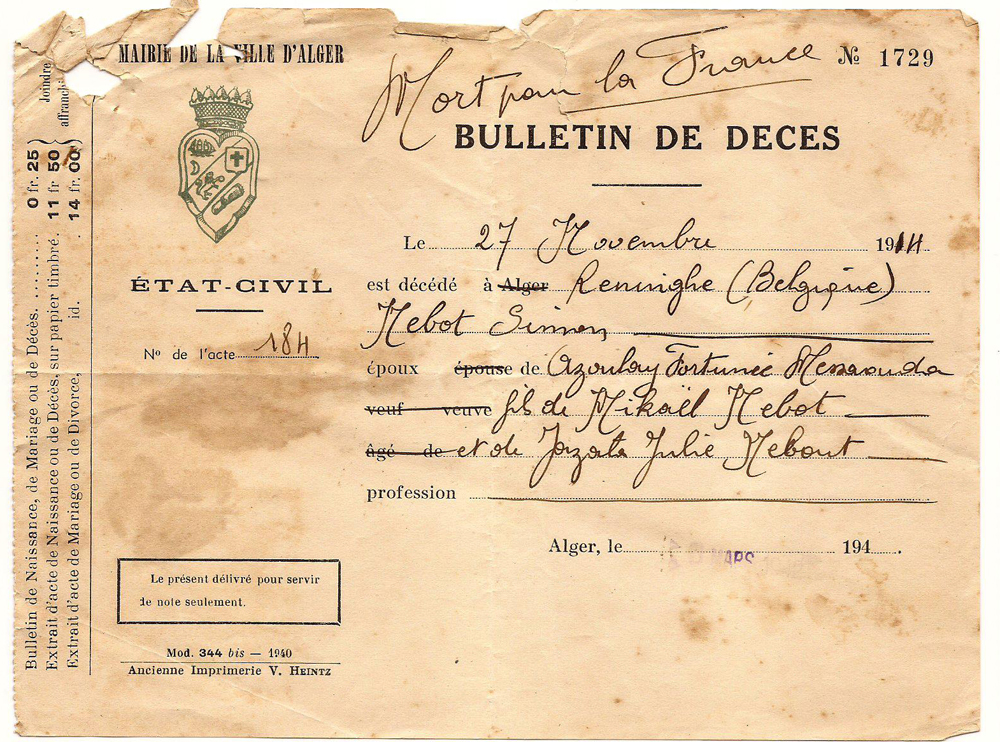 MAIRIE DE LA VILLE D'ALGER
Mort pour la France
№ 1729
BULLETIN DE DECES
Le 27 Novembre 1914
est décédé à Alger Reninghe (Belgique)
Nebot Simon
époux épouse de Azoulay Fortunée Messaouda
veuf veuve fils de Mikaël Nebot
âgé de et de Jazate Julie Nebout
profession
Alger, le MARS 194 .
ÉTAT-CIVIL
No de l'acte 184
Le présent délivré pour servir
de note seulement.
Mod. 344 bis — 1940
Ancienne Imprimerie V. HEINTZ
Joindre
affranchi
Bulletin de Naissance, de Mariage ou de Décès. 0 fr. 25
Extrait d'acte de Naissance ou de Décès, sur papier timbré. 11 fr 50
Extrait d'acte de Mariage ou de Divorce, id. 14 fr. 00